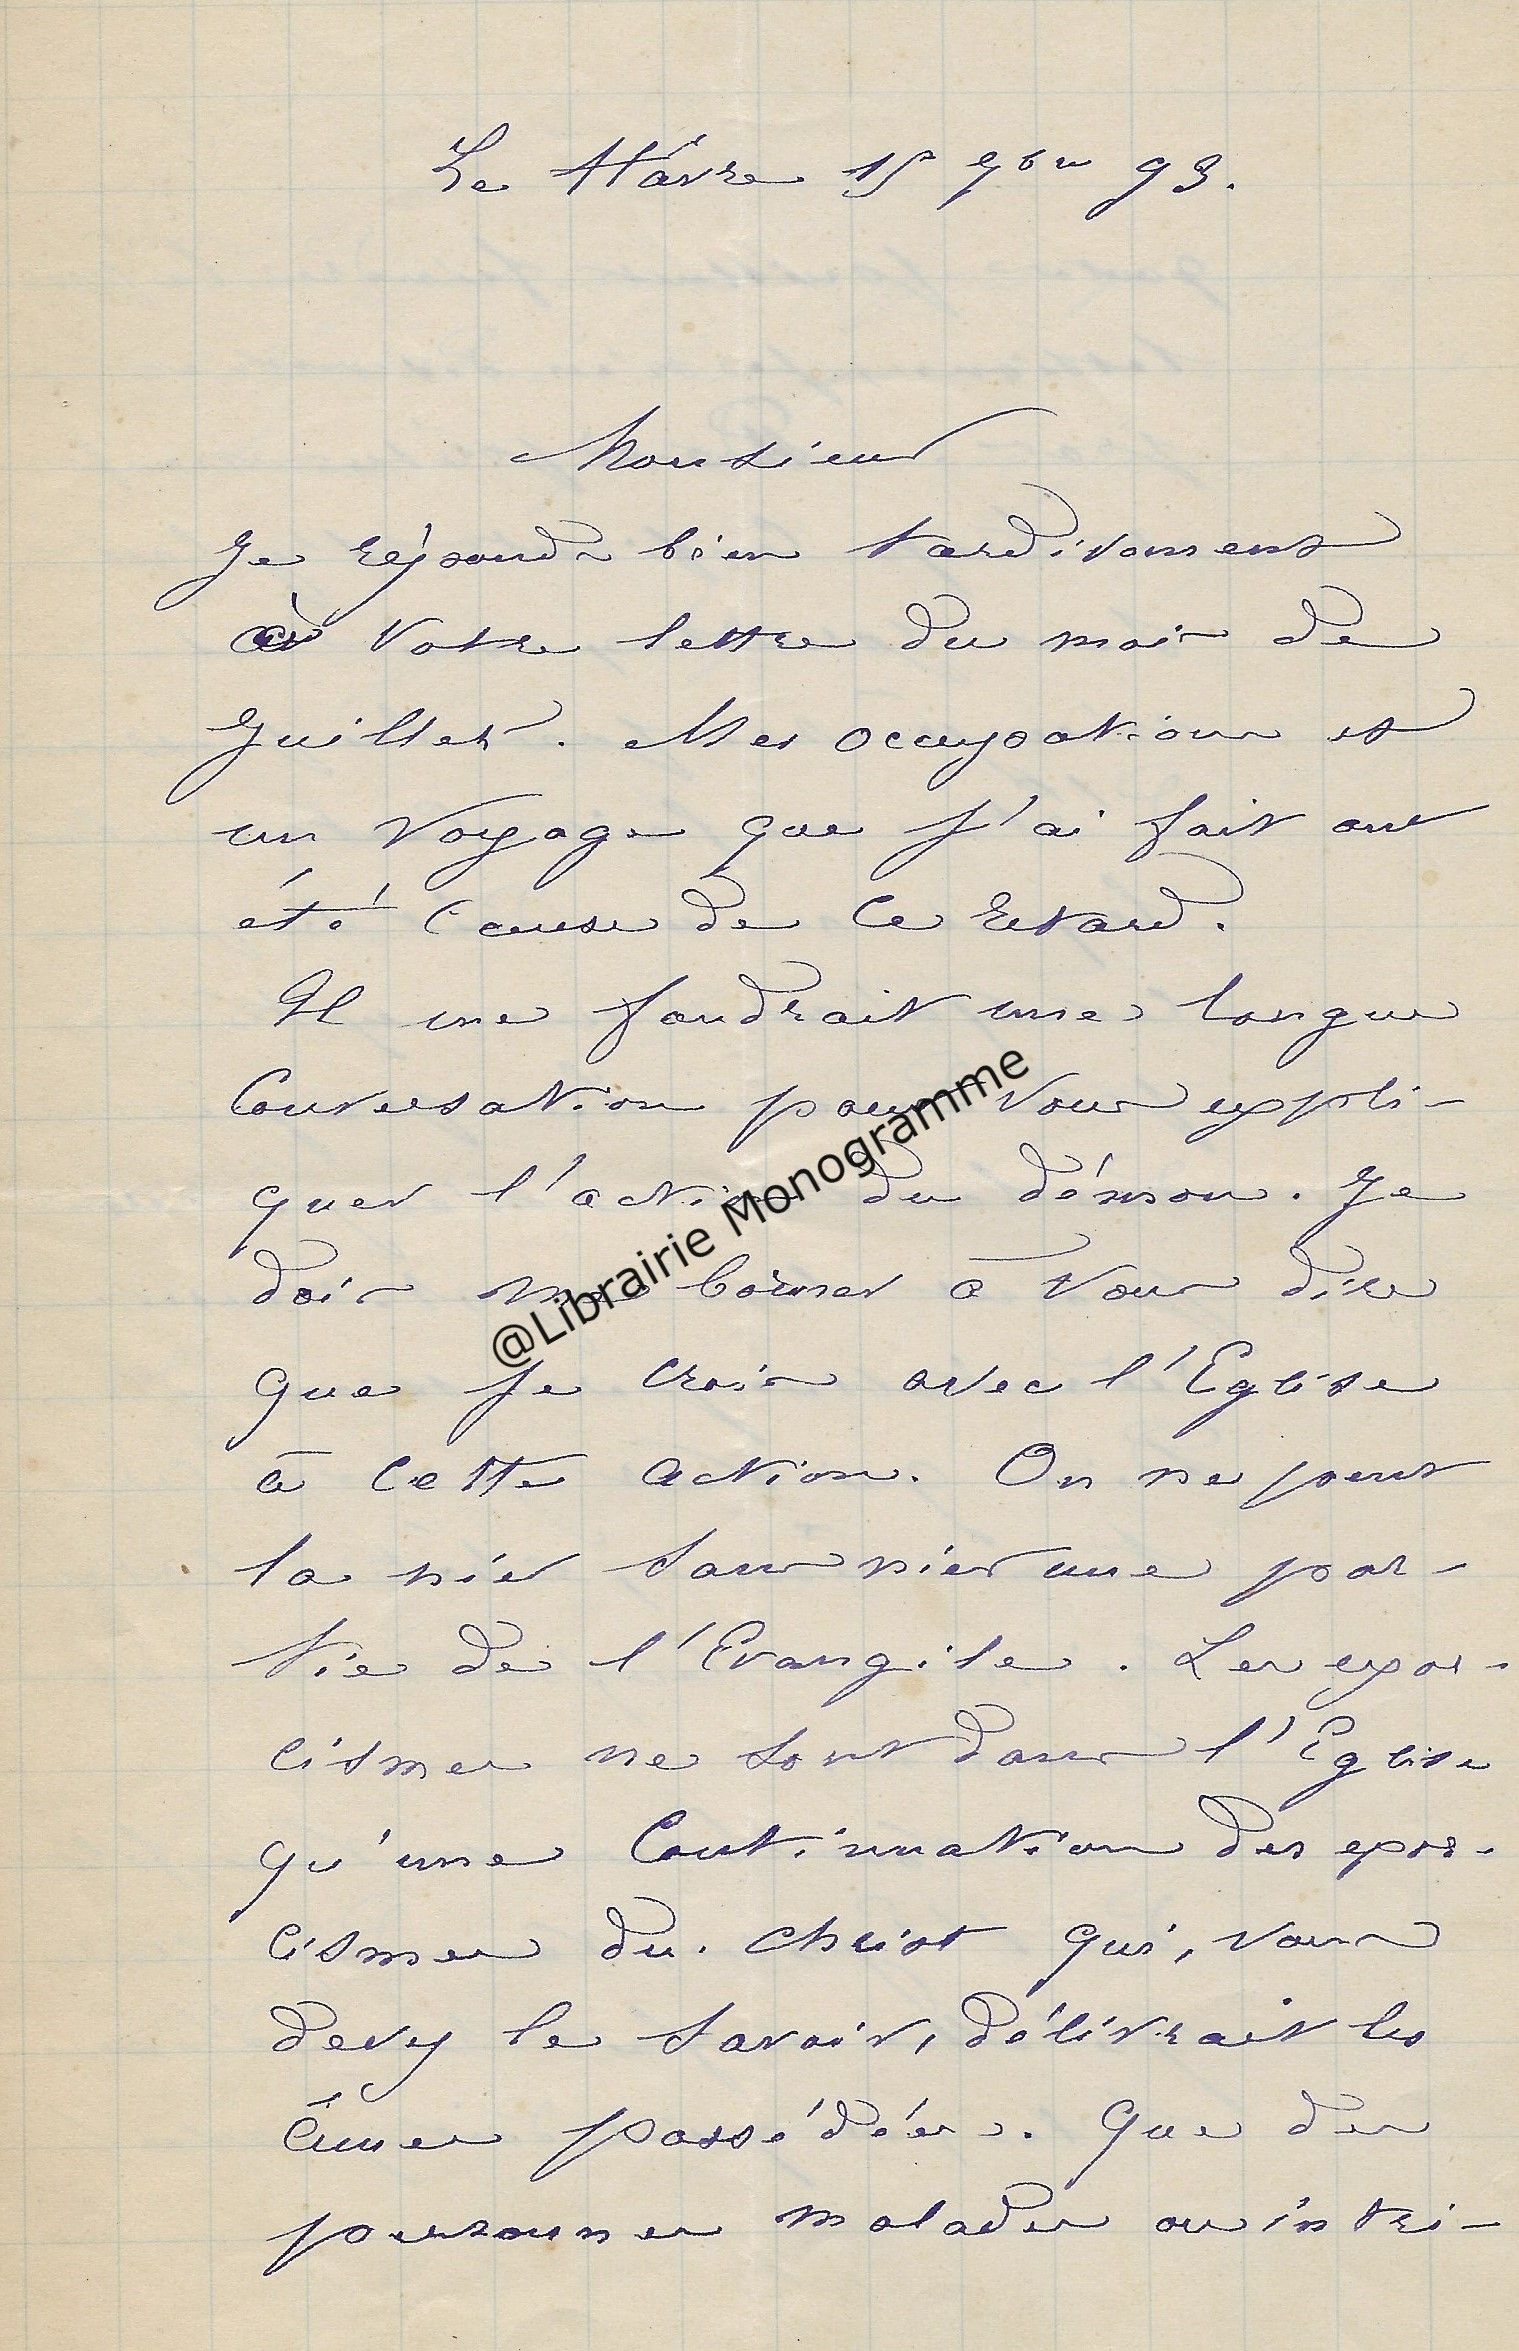 Le Hâvre 15 7bre 93.
Monsieur
Je réponds bien tardivement
à votre lettre du mois de
Juillet. Mes occupations et
un voyage que j'ai fait ont
été cause de ce retard.
Il me faudrait une longue
conversation pour vous expli-
quer l'action du démon. Je
dois me borner à vous dire
que je crois avec l'Eglise
à cette action. On ne peut
la nier sans nier une par-
tie de l'Evangile. Les exor-
cismes ne sont dans l'Eglise
qu'une continuation des exor-
cismes du Christ qui, vous
devez le savoir, délivrait les
âmes possédées. Que des
personnes malades ou intri-
@Librairie Monogramme